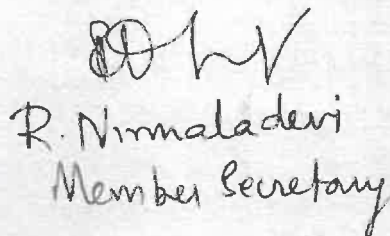 R. Nirmaladevi
Member Secretary